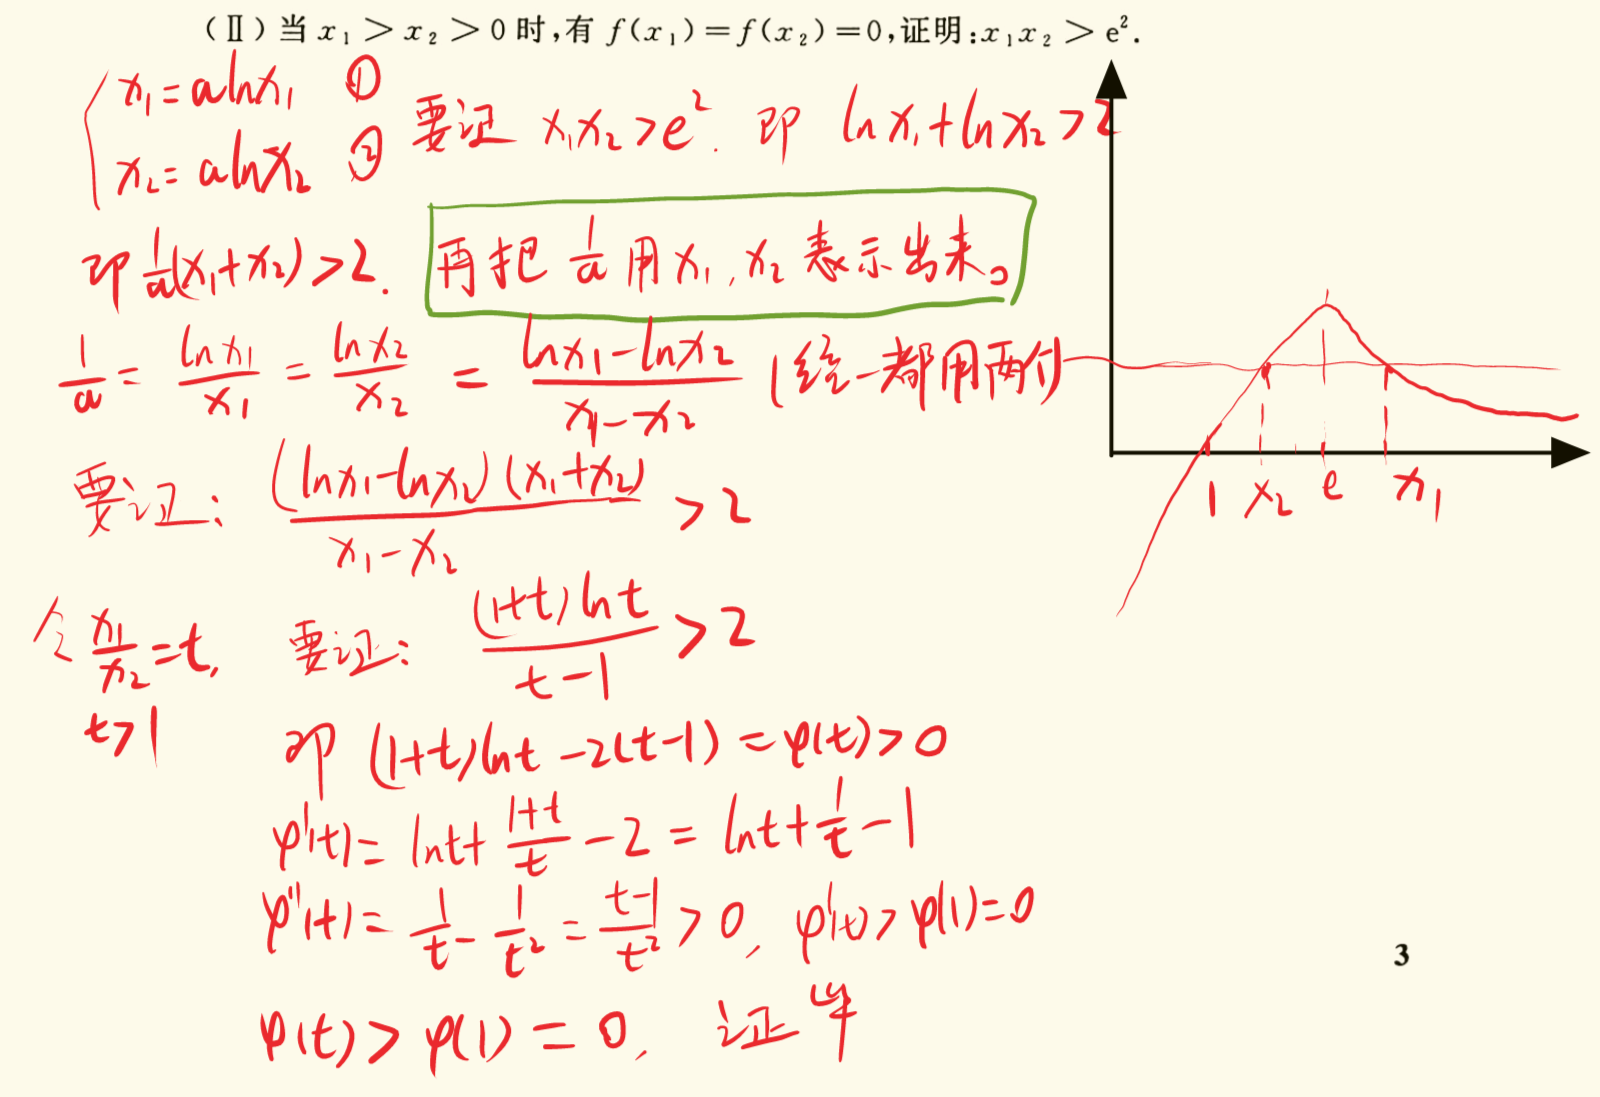 (Ⅱ)当 x₁ > x₂ > 0 时,有 f(x₁)=f(x₂)=0,证明:x₁x₂ > e².
x₁=alnx₁ ①
x₂=alnx₂ ②
要证 x₁x₂>e². 即 lnx₁+lnx₂>2
即 1/a(x₁+x₂)>2. 再把 1/a 用 x₁,x₂ 表示出来。
1/a = lnx₁/x₁ = lnx₂/x₂ = (lnx₁-lnx₂)/(x₁-x₂) (统一都用两个)
要证: (lnx₁-lnx₂)(x₁+x₂)/(x₁-x₂) >2
令 x₁/x₂=t, 要证: (1+t)lnt/(t-1) >2
t>1
即 (1+t)lnt-2(t-1)=φ(t)>0
φ'(t)= lnt+(1+t)/t-2 = lnt+1/t-1
φ''(t)= 1/t-1/t² = (t-1)/t² >0, φ'(t)>φ'(1)=0
φ(t)>φ(1)=0, 证毕
1 x₂ e x₁
3